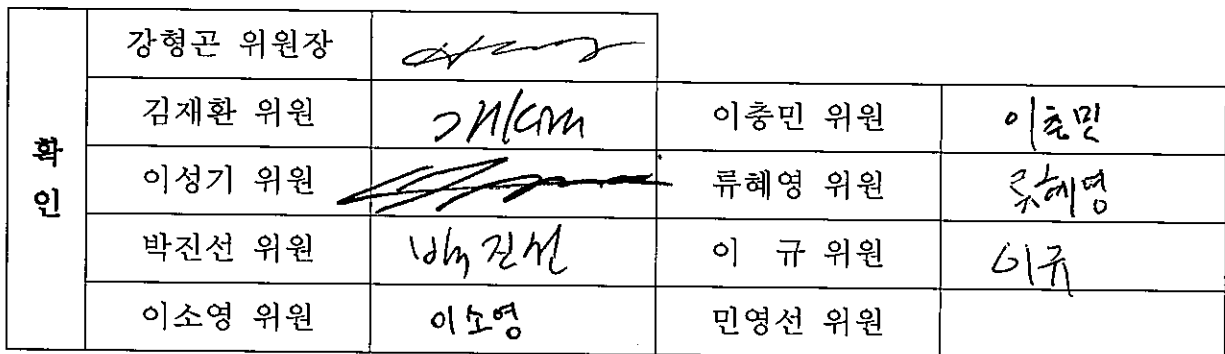 확인
강형곤 위원장
김재환 위원 이총민 위원 이총민
이성기 위원 류혜영 위원 류혜영
박진선 위원 박진선 이 규 위원 이규
이소영 위원 이소영 민영선 위원